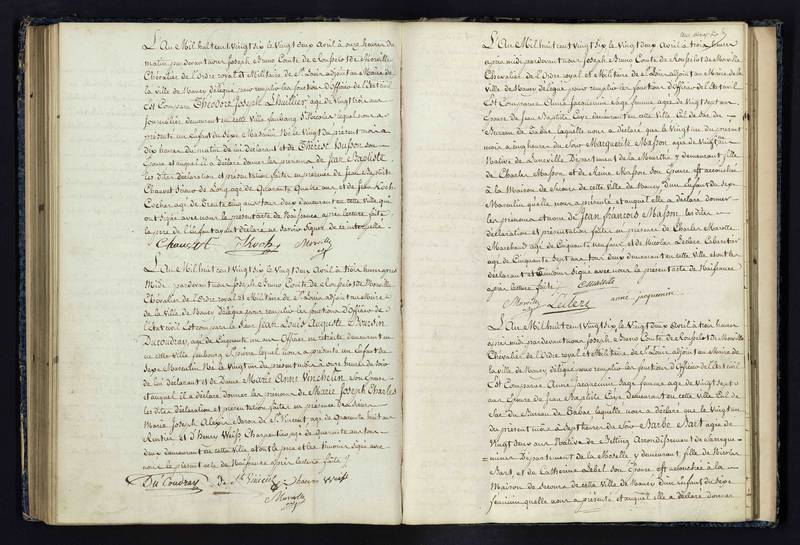 L'An Mil huit cent vingt six le vingt deux Avril à onze heures du
matin par devant nous Joseph Bruno Comte de Rouxelot de Morville
Chevalier de l'Ordre royal et Militaire de St Louis adjoint au Maire de
la Ville de Nancy délégué pour remplir les fonctions d'officier de l'état civil
Est Comparu Theodore Joseph Lhuillier agé de vingt trois ans
Journalier demeurant en cette Ville faubourg St Nicolas lequel nous a
présenté un Enfant du Sexe Masculin né le vingt du présent mois à
dix heures du matin de lui déclarant et de Thérèse Husson son
Epouse et auquel il a déclaré donner les prénoms de Jean Baptiste
les dites déclaration et présentation faites en présence de Jean
Chauvot agé de Quarante Quatre ans et de Jean Koch
Cocher agé de trente cinq ans tous deux demeurant en cette Ville qui
ont signé avec nous le présent acte de Naissance après lecture faite
le père de l'Enfant ayant déclaré ne savoir signer de ce interpellé
Koch Morville
L'An Mil huit cent vingt six le vingt deux Avril à trois heures après
Midi par devant nous Joseph Bruno Comte de Rouxelot de Morville
Chevalier de l'Ordre royal et Militaire de St Louis adjoint au Maire
de la Ville de Nancy délégué pour remplir les fonctions d'officier de
l'état civil Est comparu le Sieur Jean Louis Auguste Bressin
Ducoudray agé de Cinquante un ans Officier en retraite demeurant en
cette Ville faubourg St Pierre lequel nous a présenté un Enfant du
Sexe Masculin Né le vingt un du présent mois à onze heures du soir
de lui déclarant et de Dame Marie Anne Vinchelin son Epouse
et auquel il a déclaré donner les prénoms de Marie Joseph Charles
les dites déclaration et présentation faites en présence de
Marie Joseph Alexis Baron de St Vincent agé de Quarante huit ans
Rentier et d'Henry Weiss Charpentier agé de Quarante ans tous
deux demeurant en cette Ville et ont le père et les témoins signé avec
nous le présent acte de Naissance après lecture faite
Du Coudray de St Vincent henry Weiss
Morville
L'An Mil huit cent vingt six le vingt deux Avril à trois heures
après midi par devant nous Joseph Bruno Comte de Rouxelot de Morville
Chevalier de l'Ordre royal et Militaire de St Louis adjoint au Maire de la
Ville de Nancy délégué pour remplir les fonctions d'officier de l'état civil
Est Comparue Anne Jacquemin Sage femme agée de vingt sept ans
Epouse de Jean Baptiste Caye demeurant en cette Ville Cul de Sac du
Bureau de Tabac laquelle nous a déclaré que le vingt un du présent
mois à cinq heures du soir Marguerite Masson agée de vingt ans
Native de Luneville Département de la Meurthe y demeurant fille
de Charles Masson, et de Reine Masson son Epouse est accouchée
à la Maison de Secours de cette Ville de Nancy d'un Enfant du Sexe
Masculin qu'elle nous a présenté et auquel elle a déclaré donner
les prénoms et nom de Jean françois Masson, les dites
déclaration et présentation faites en présence de Charles Marotte
Marchand agé de Cinquante neuf ans et de Nicolas Leclerc Cabaretier
agé de Cinquante sept ans tous deux demeurant en cette Ville et ont la
déclarant et témoins signé avec nous le présent acte de Naissance
après lecture faite Marotte
Morville Leclerc anne jacquemin
L'An Mil huit cent vingt six le vingt deux Avril à trois heures
après midi par devant nous Joseph Bruno Comte de Rouxelot de Morville
Chevalier de l'Ordre royal et Militaire de St Louis adjoint au Maire de
la Ville de Nancy délégué pour remplir les fonctions d'officier de l'état civil
Est Comparue Anne Jacquemin Sage femme agée de vingt sept
ans Epouse de Jean Baptiste Caye demeurant en cette Ville Cul de
Sac du Bureau de Tabac laquelle nous a déclaré que le vingt un
du présent mois à sept heures du soir Barbe Bart agée de
vingt deux ans Native de Betting Arrondissement de Sarregue=
=mines Département de la Moselle y demeurant fille de Nicolas
Bart, et de Catherine Lebel son Epouse est accouchée à la
Maison de Secours de cette Ville de Nancy d'un Enfant du Sexe
féminin qu'elle nous a présenté et auquel elle a déclaré donner